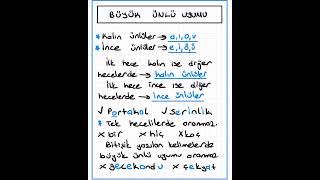 BÜYÜK ÜNLÜ UYUMU
* Kalın ünlüler → a,ı,o,u
* İnce ünlüler → e,i,ö,ü
İlk hece kalın ise diğer
hecelerde → kalın ünlüler
İlk hece ince ise diğer
hecelerde → ince ünlüler
✓ Portakal ✓ Serinlik
* Tek hecelilerde aranmaz.
x bir x hiç x koç
Bitişik yazılan kelimelerde
büyük ünlü uyumu aranmaz
x gecekondu x çekyat